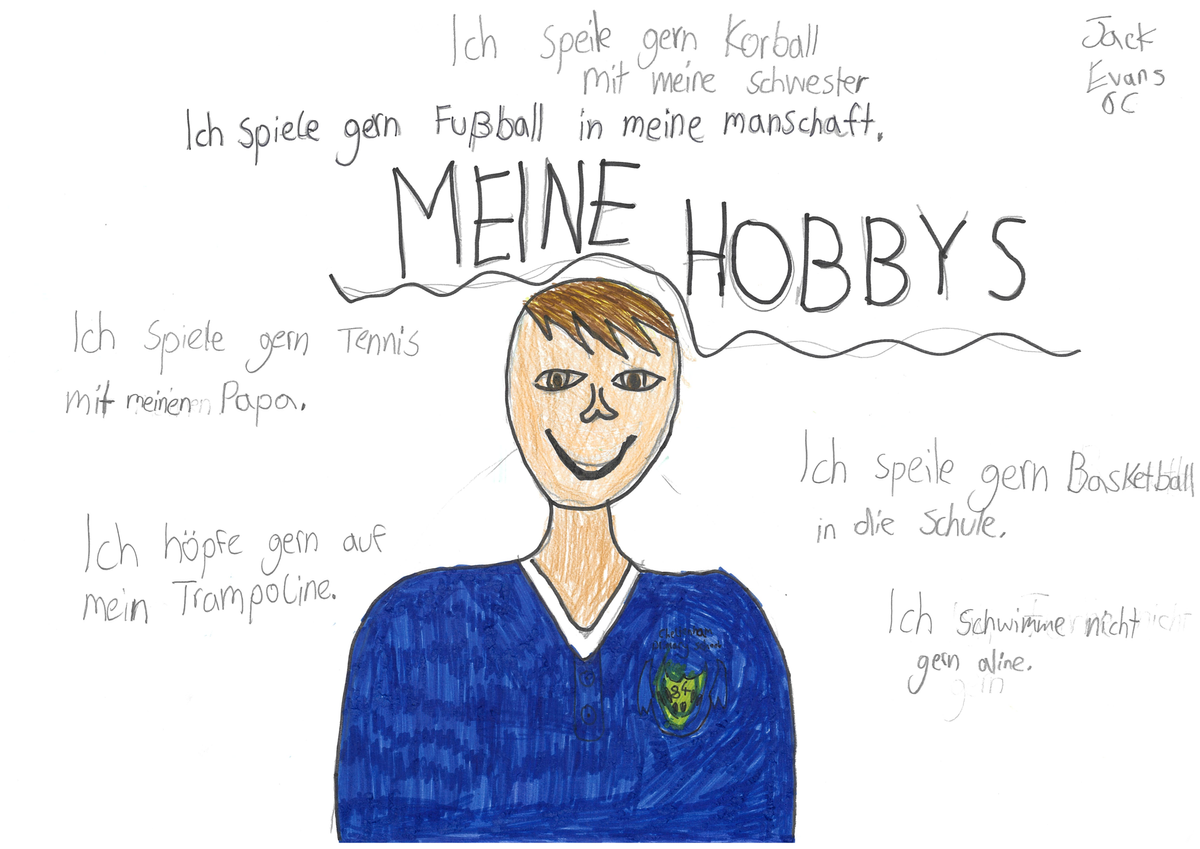 Ich speile gern Korball
mit meine schwester
Jack
Evans
6C
Ich spiele gern Fußball in meine manschaft.
MEINE
HOBBYS
Ich spiele gern Tennis
mit meinen Papa.
Ich speile gern Basketball
in die Schule.
Ich höpfe gern auf
mein Trampoline.
Ich schwimme nicht
gern aline.
84